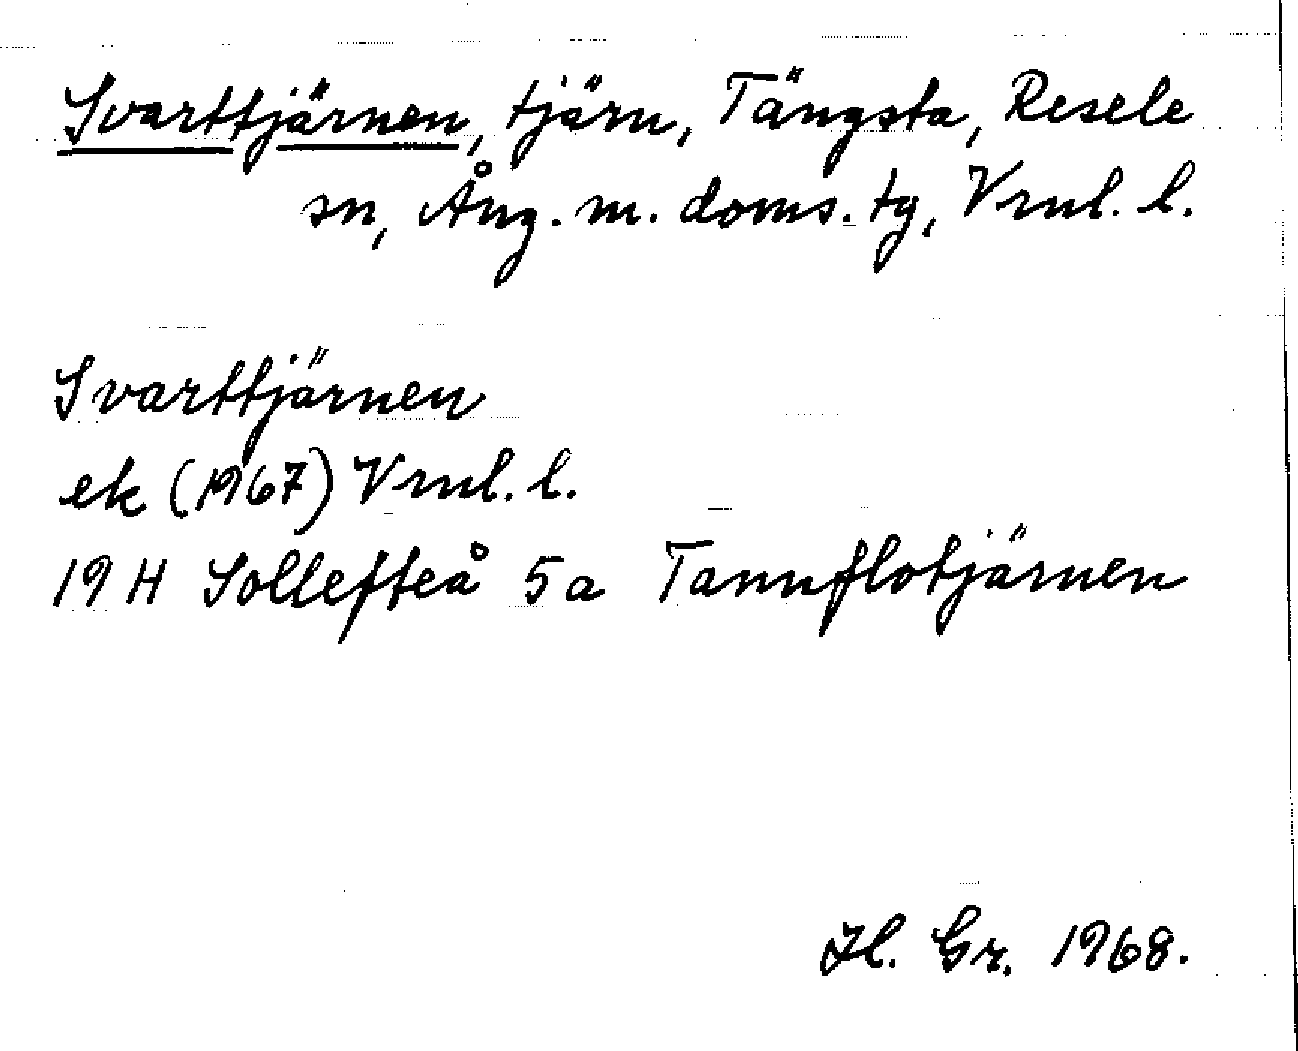 Svarttjärnen, tjärn, Tängsta, Resele
sn, Ång. m. doms. tg, Vrnl. l.
Svarttjärnen
ek (1967) Vrnl. l.
19 H Sollefteå 5a Tannflotjärnen
Hl. Gr. 1968.